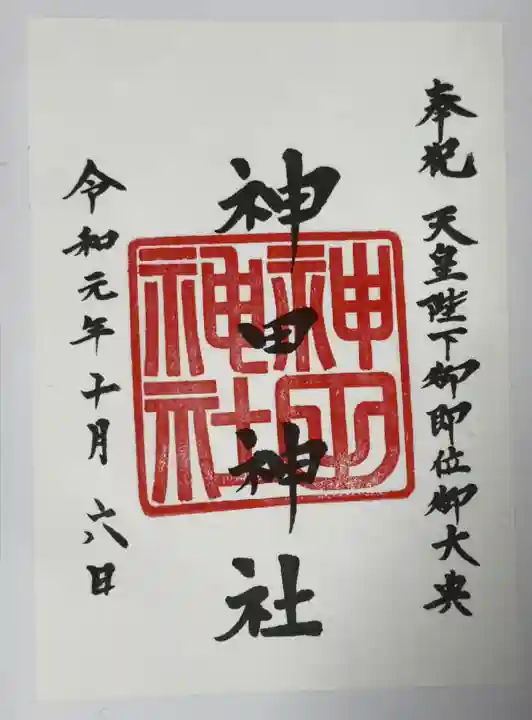 奉祝 天皇陛下御即位御大典
神田神社
令和元年十月六日
神
神社